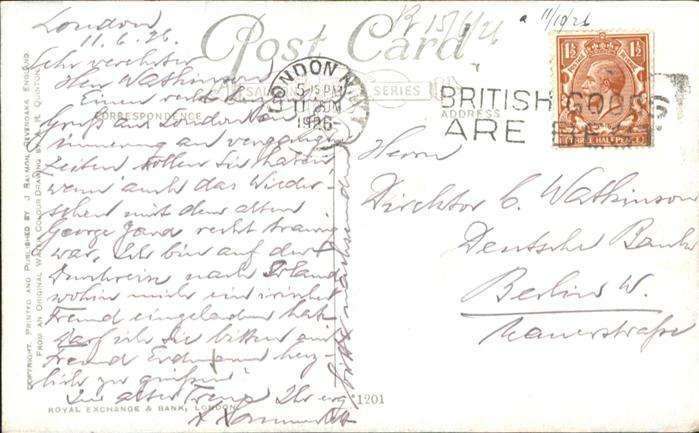 London
11.6.26.
Sehr verehrter
Herr Watkinson
Einen recht
Gruß aus London
innerung an vergangene
Zeiten sollen Sie haben
wenn auch das Wieder-
sehen mit dem alten
George Yard recht traurig
war. Ich bin auf der
Durchreise nach Irland
wohin mich ein irischer
Freund eingeladen hat.
Darf ich Sie bitten auch
Freund Erdmann herz-
lich zu grüßen?
In alter Treue Ihr erg.
bitte nachsenden
Post Card
SALMON SERIES
CORRESPONDENCE
ADDRESS
LONDON
5.15 PM
11 JUN
1926
BRITISH GOODS
ARE BEST
1½ 1½
THREE HALFPENCE
11/10/26
Herrn
Direktor C. Watkinson
Deutsche Bank
Berlin W.
Mauerstraße
1201
ROYAL EXCHANGE & BANK, LONDON
COPYRIGHT. PRINTED AND PUBLISHED BY J. SALMON, SEVENOAKS, ENGLAND.
FROM AN ORIGINAL WATER COLOUR DRAWING BY A. R. QUINTON